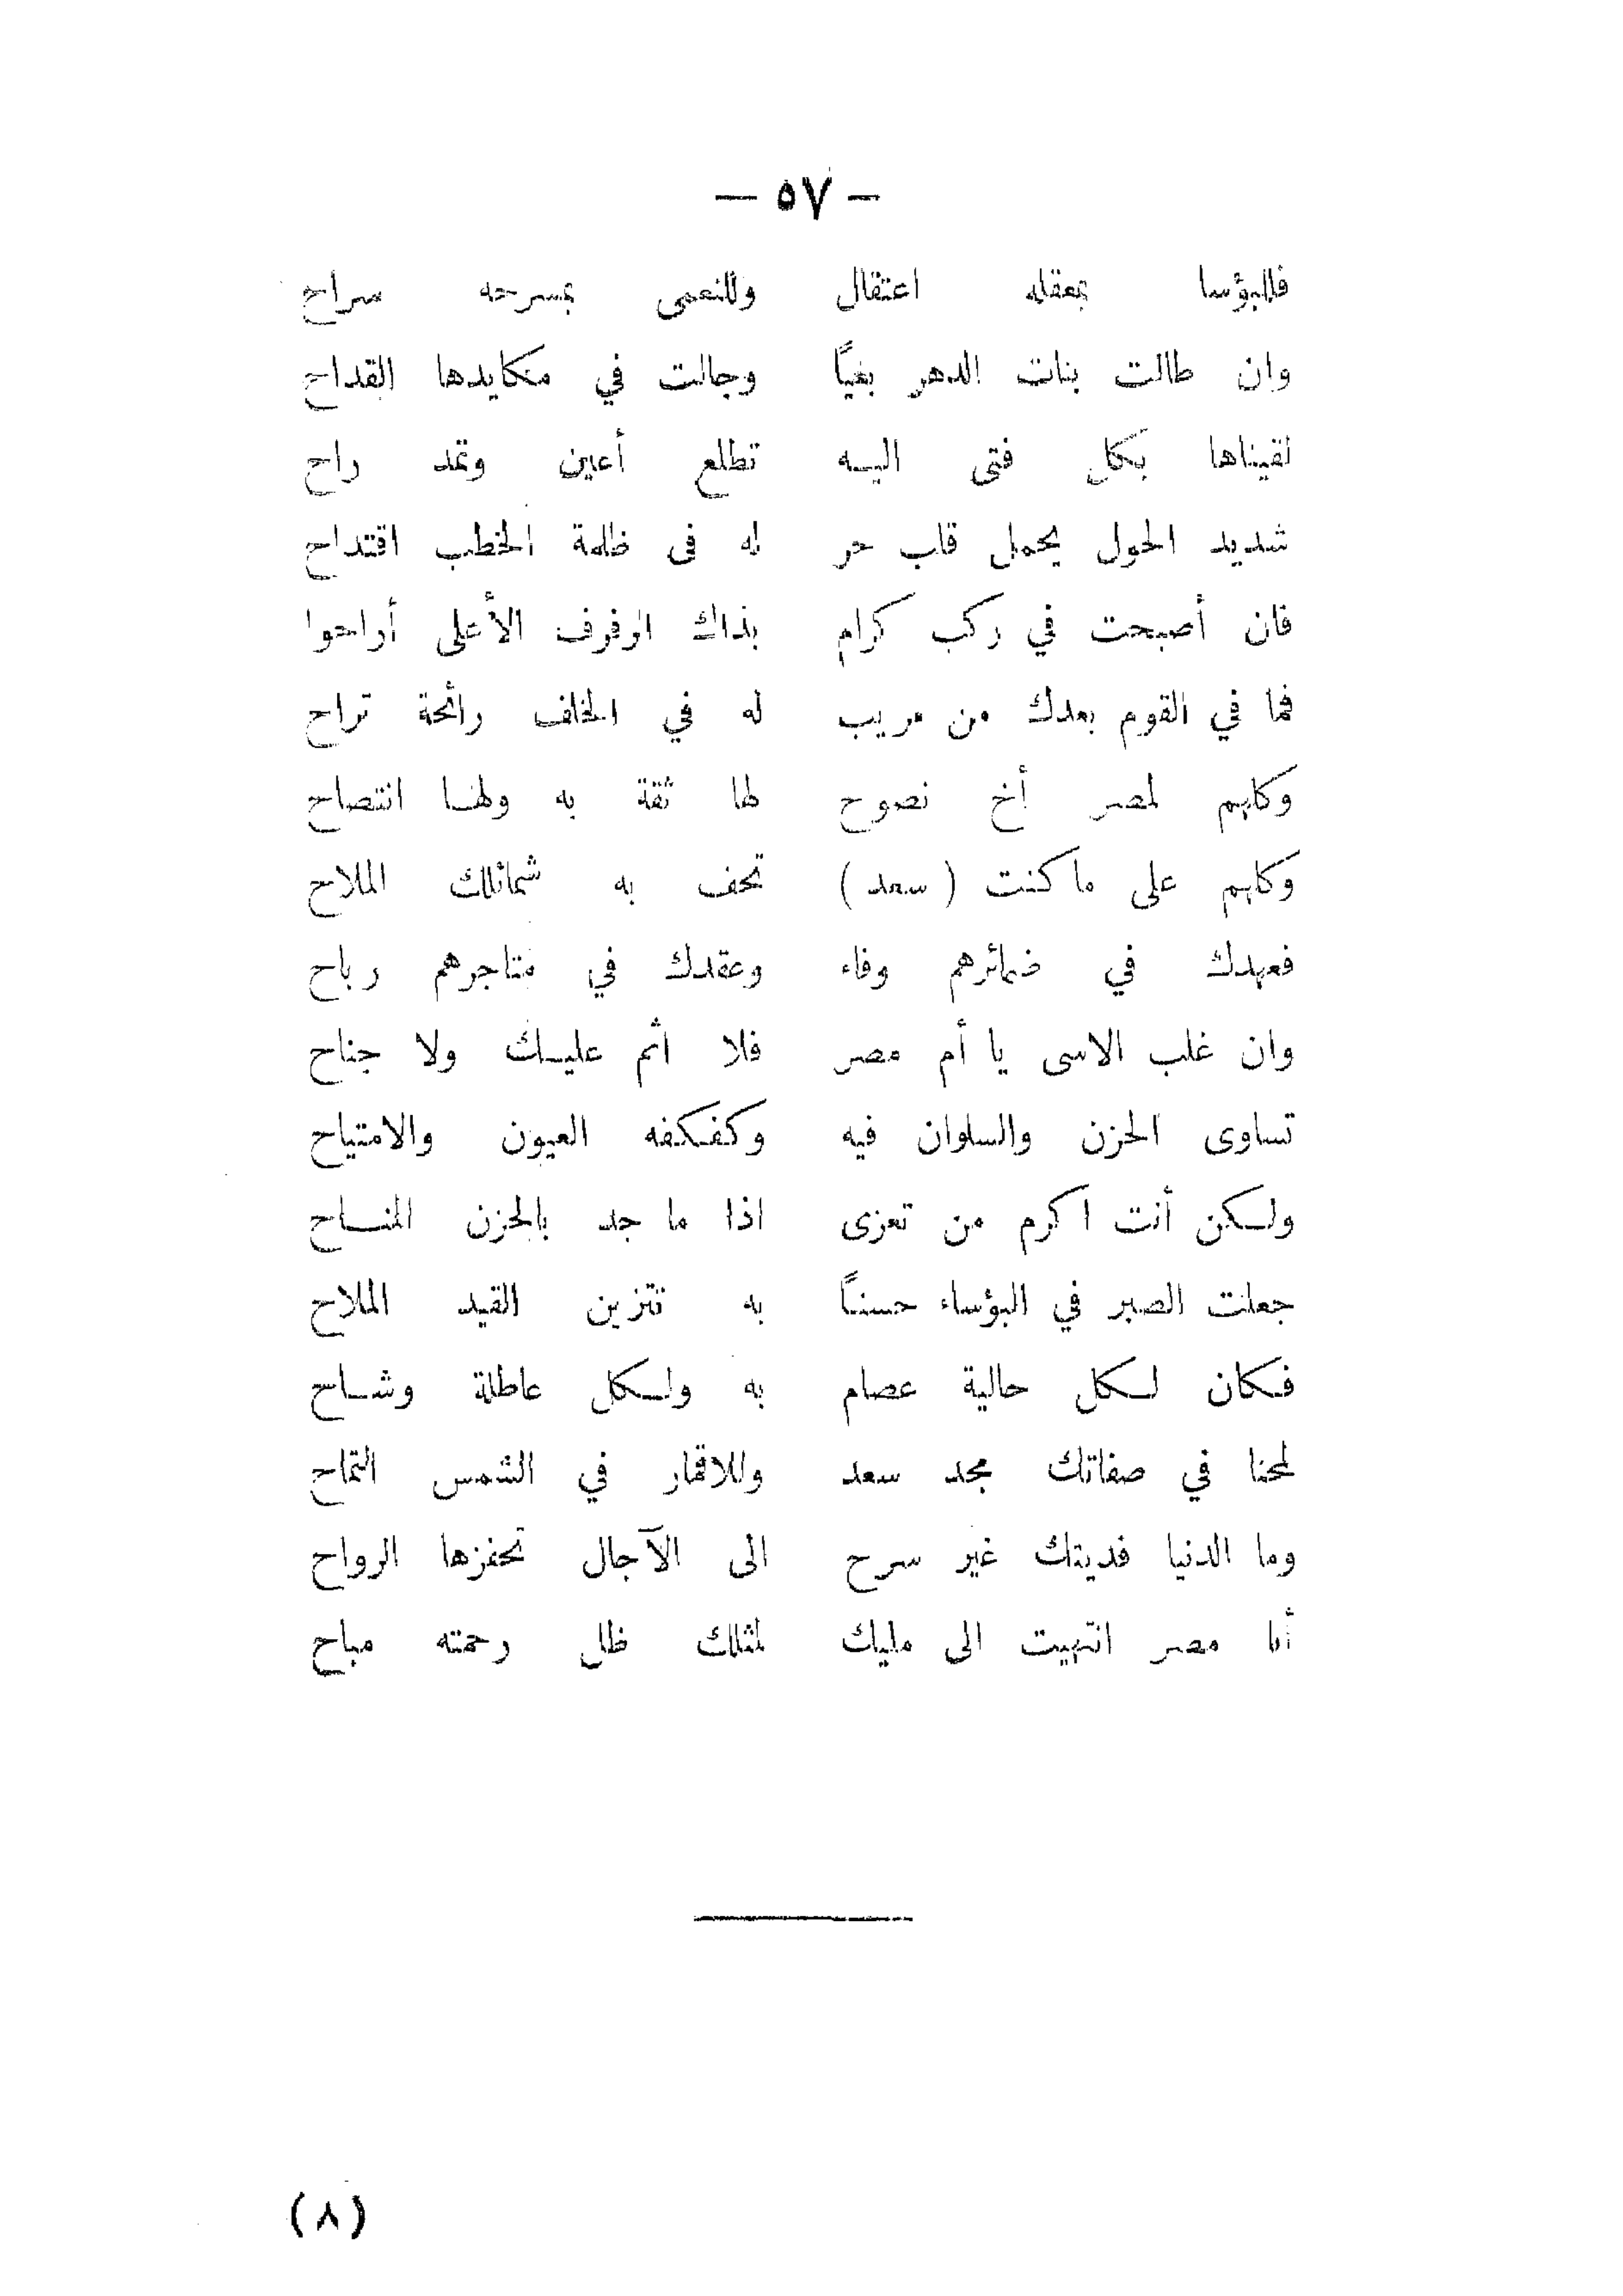 — ٥٧ —
فللبؤسا بمعقله اعتقال وللنعمى بمسرحه سراح
وان طالت بنات الدهر بغياً وجالت في مكايدها القداح
لقيناها بكل فتى اليه تطلع أعين وتمد راح
شديد الحول يحمل قلب حر له فى ظلمة الخطب اقتداح
فان أصبحت في ركب كرام بذاك الرفرف الأعلى أراحوا
فما في القوم بعدك من مريب له في الخلف رائحة تراح
وكلهم لمصر أخ نصوح لها ثقة به ولها انتصاح
وكلهم على ما كنت (سعد) تحف به شمائلك الملاح
فعهدك في ضمائرهم وفاء وعقدك في متاجرهم رباح
وان غلب الاسى يا أم مصر فلا اثم عليك ولا جناح
تساوى الحزن والسلوان فيه وكفكفه العيون والامتياح
ولكن أنت اكرم من تعزى اذا ما جد بالحزن المناح
جعلت الصبر في البؤساء حسناً به تتزين الغيد الملاح
فكان لكل حالية عصام به ولكل عاطلة وشاح
لمحنا في صفاتك مجد سعد وللاقمار في الشمس التماح
وما الدنيا فديتك غير سرح الى الآجال تحفزها الرواح
أما مصر انتهيت الى مليك لمثلك ظل رحمته مباح
(٨)